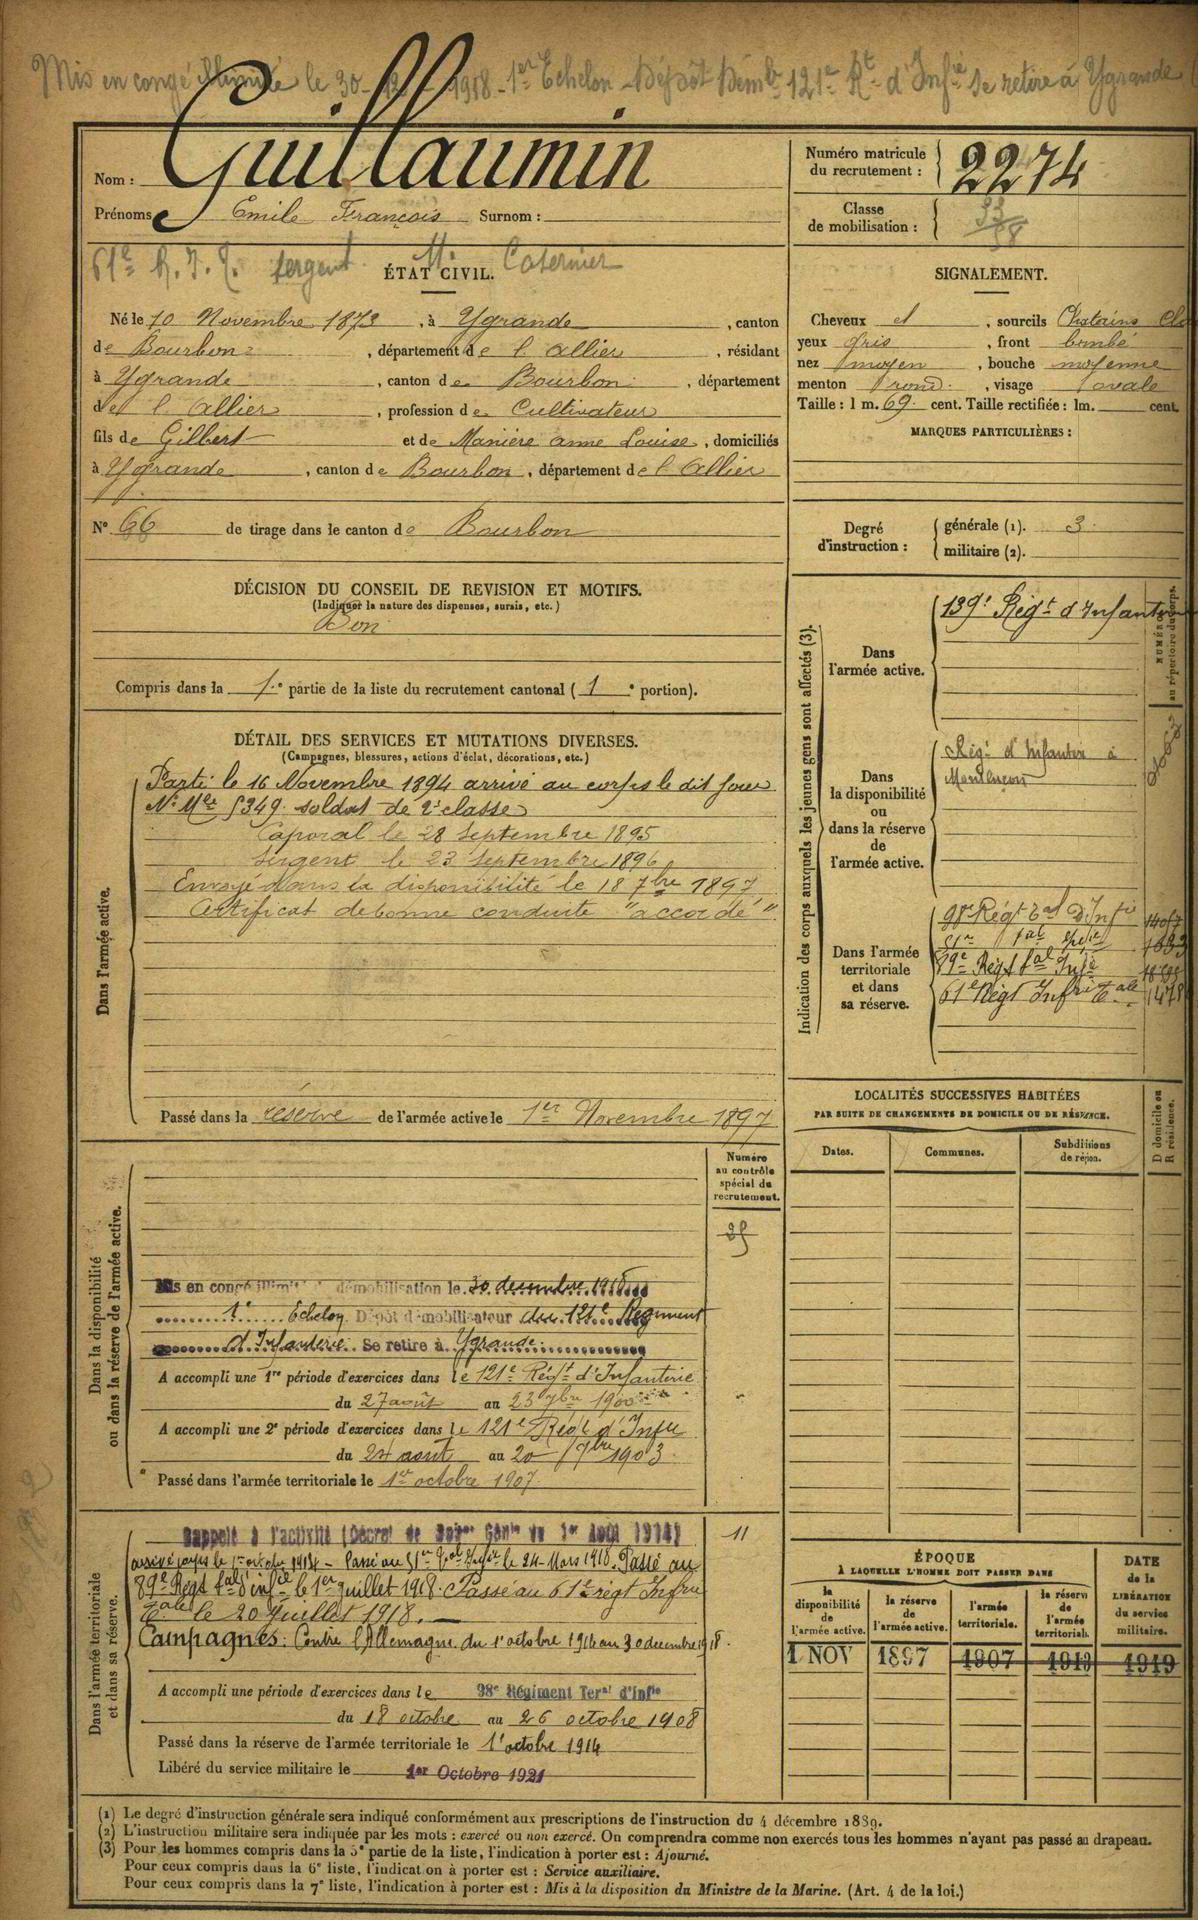 Mis en congé illimité le 30-12-1918-1er Echelon-Dépôt Démb 121e Rt d'Infie se retire à Ygrande
Nom : Guillaumin
Prénoms Emile François Surnom :
Numéro matricule du recrutement : 2274
Classe de mobilisation :
61e R.I.T. sergent
ÉTAT CIVIL.
Né le 10 Novembre 1873, à Ygrande, canton
de Bourbon, département de l'Allier, résidant
à Ygrande, canton de Bourbon, département
de l'Allier, profession de Cultivateur
fils de Gilbert et de Manière anne Louise, domiciliés
à Ygrande, canton de Bourbon, département de l'Allier
N° 66 de tirage dans le canton de Bourbon
SIGNALEMENT.
Cheveux et, sourcils Chatains
yeux gris, front bombé
nez moyen, bouche moyenne
menton rond, visage ovale
Taille : 1 m. 69 cent. Taille rectifiée : 1m. cent.
MARQUES PARTICULIÈRES :
Degré d'instruction :
générale (1). 3
militaire (2).
DÉCISION DU CONSEIL DE REVISION ET MOTIFS.
(Indiquer la nature des dispenses, sursis, etc.)
Bon
Compris dans la 1e partie de la liste du recrutement cantonal (1e portion).
DÉTAIL DES SERVICES ET MUTATIONS DIVERSES.
(Campagnes, blessures, actions d'éclat, décorations, etc.)
Dans l'armée active.
Parti le 16 Novembre 1894 arrivé au corps le dit jour
N° Mle 5349 soldat de 2e classe
Caporal le 28 Septembre 1895
Sergent le 23 Septembre 1896
Envoyé dans la disponibilité le 18 7bre 1897
Certificat de bonne conduite "accordé"
Passé dans la réserve de l'armée active le 1er Novembre 1897
Indication des corps auxquels les jeunes gens sont affectés (3).
NUMÉRO au répertoire du corps.
Dans l'armée active.
139e Régt d'Infanterie
Dans la disponibilité ou dans la réserve de l'armée active.
Régt d'Infanterie à
Montluçon
Dans l'armée territoriale et dans sa réserve.
98e Régt Tal d'Infie
51e
89e Régt Tal Infie
61e Régt Infrie Tale
LOCALITÉS SUCCESSIVES HABITÉES
PAR SUITE DE CHANGEMENTS DE DOMICILE OU DE RÉSIDENCE.
Dates. Communes. Subdivisions de région. D domicile ou R résidence.
Dans la disponibilité ou dans la réserve de l'armée active.
Numéro au contrôle spécial du recrutement.
Mis en congé illimité démobilisation le 30 décembre 1918
1e Echelon Dépôt démobilisateur du 121e Régiment
d'Infanterie Se retire à Ygrande
A accompli une 1re période d'exercices dans le 121e Régt d'Infanterie
du 27 août au 23 7bre 1900
A accompli une 2e période d'exercices dans le 121e Régt d'Infie
du 24 août au 20 7bre 1903
Passé dans l'armée territoriale le 1er octobre 1907
Dans l'armée territoriale et dans sa réserve.
11
Rappelé à l'activité (Décret de Mobon Génle du 1er Août 1914)
arrivé au corps le 1er octobre 1914 - Passé au 51e Tal Infie le 24 Mars 1918. Passé au
89e Régt Tal d'infie le 1er juillet 1918. Passé au 61e régt Infrie
Tale le 20 juillet 1918.
Campagnes : Contre l'Allemagne du 1er octobre 1914 au 30 décembre 1918.
A accompli une période d'exercices dans le 98e Régiment Terral d'Infie
du 18 octobre au 26 octobre 1908
Passé dans la réserve de l'armée territoriale le 1er octobre 1914
Libéré du service militaire le 1er Octobre 1921
ÉPOQUE
À LAQUELLE L'HOMME DOIT PASSER DANS
la disponibilité de l'armée active.
la réserve de l'armée active.
l'armée territoriale.
la réserve de l'armée territoriale.
DATE de la LIBÉRATION du service militaire.
1 NOV 1897 1907 1913 1919
(1) Le degré d'instruction générale sera indiqué conformément aux prescriptions de l'instruction du 4 décembre 1889.
(2) L'instruction militaire sera indiquée par les mots : exercé ou non exercé. On comprendra comme non exercés tous les hommes n'ayant pas passé au drapeau.
(3) Pour les hommes compris dans la 5e partie de la liste, l'indication à porter est : Ajourné.
Pour ceux compris dans la 6e liste, l'indication à porter est : Service auxiliaire.
Pour ceux compris dans la 7e liste, l'indication à porter est : Mis à la disposition du Ministre de la Marine. (Art. 4 de la loi.)